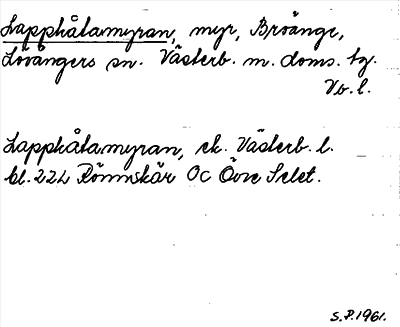 Lapphålamyran, myr, Broänge,
Lövångers sn. Västerb. m. doms. tg.
Vb. l.
Lapphålamyran, ek. Västerb. l.
bl. 22L Rönnskär Oc Övre Selet.
S.P. 1961.